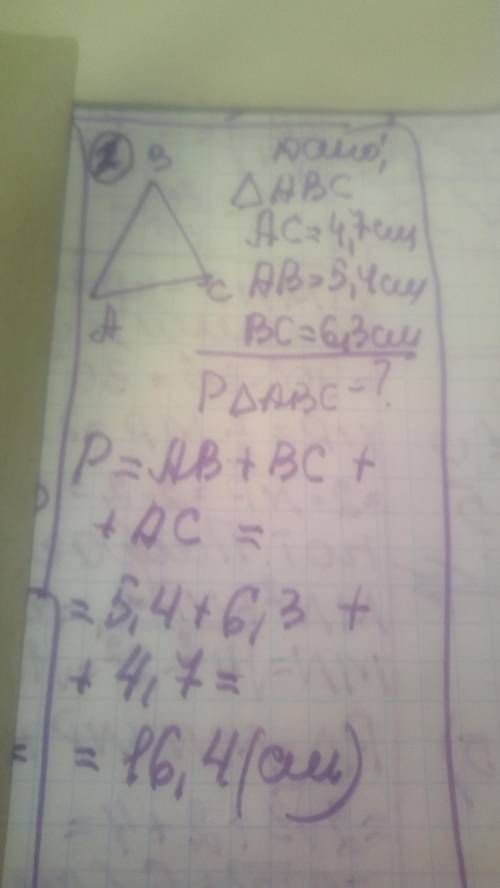 B
Дано:
△ABC
AC=4,7см
C AB=5,4см
A BC=6,3см
P△ABC-?
P=AB+BC+
+AC=
=5,4+6,3+
+4,7=
= =16,4(см)